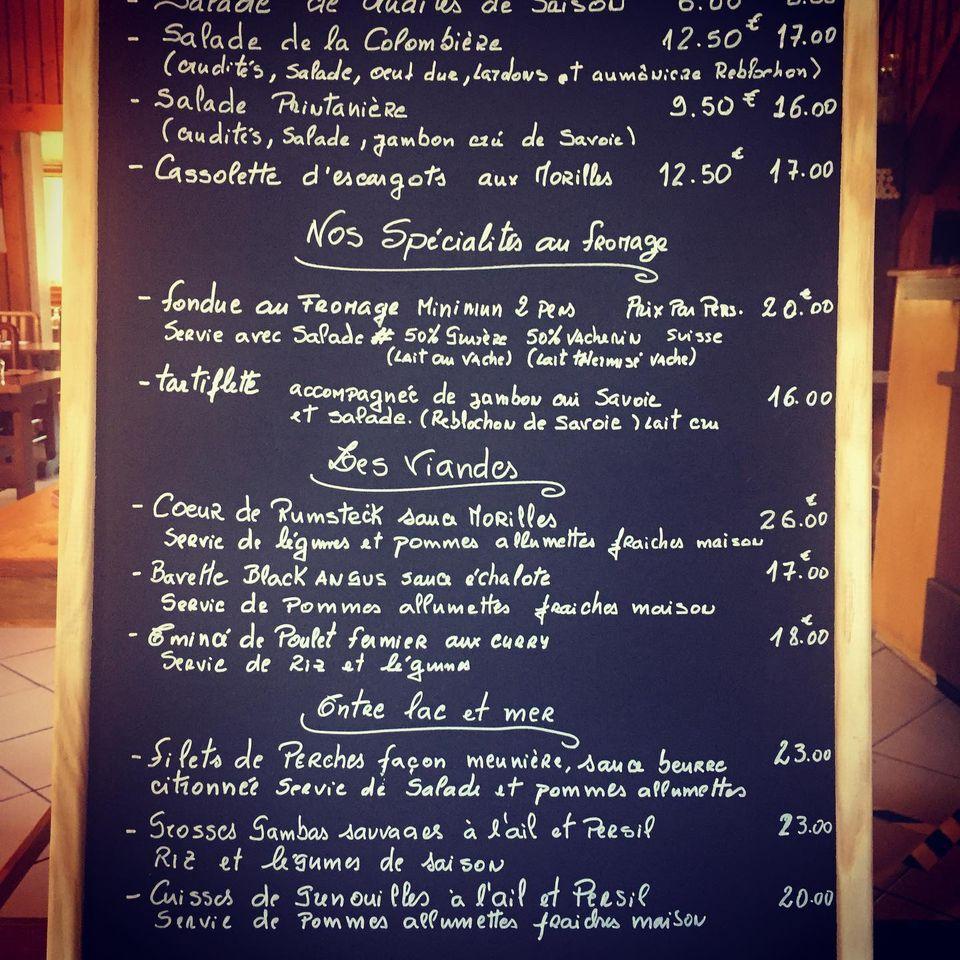 - Salade de crudités de Saison 6.00 8.00
- Salade de la Colombière 12.50€ 17.00
(crudités, salade, oeuf dur, lardons et aumônière Reblochon)
- Salade Printanière 9.50€ 16.00
(crudités, Salade, jambon cru de Savoie)
- Cassolette d'escargots aux Morilles 12.50€ 17.00
Nos Spécialités au fromage
- fondue au Fromage Minimun 2 pers Prix Par Pers. 20.00€
Servie avec Salade 50% Gruyère 50% Vacherin Suisse
(Lait cru vache) (lait thermisé vache)
- tartiflette accompagnée de jambon cru Savoie 16.00
et salade. (Reblochon de Savoie) lait cru
Les Viandes
- Coeur de Rumsteck sauce Morilles 26.00€
Servie de légumes et pommes allumettes fraiches maison
- Bavette Black Angus sauce échalote 17.00€
Servie de pommes allumettes fraiches maison
- Emincé de Poulet fermier aux curry 18.00€
Servie de Riz et légumes
Entre lac et mer
- Filets de Perches façon meunière, sauce beurre 23.00
citronnée Servie de Salade et pommes allumettes
- Grosses Gambas sauvages à l'ail et Persil 23.00
Riz et légumes de saison
- Cuisses de Grenouilles à l'ail et Persil 20.00
Servie de Pommes allumettes fraiches maison